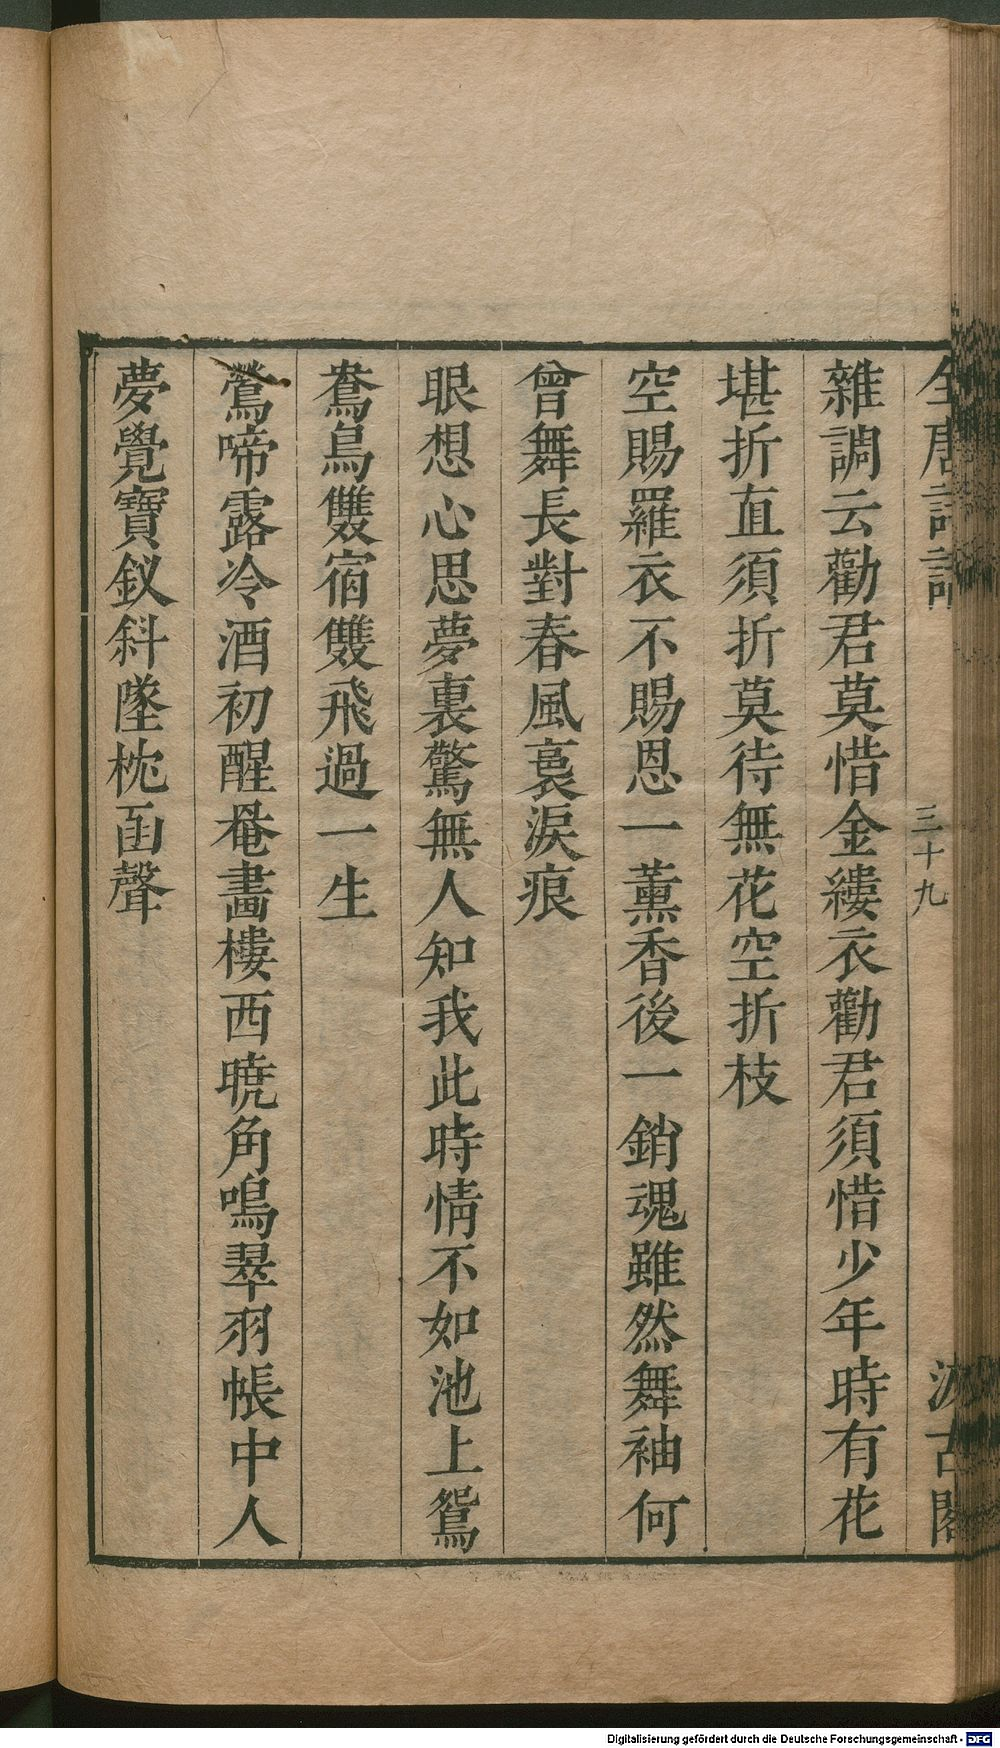 全唐詩話
三十九
汲古閣
雜調云勸君莫惜金縷衣勸君須惜少年時有花
堪折直須折莫待無花空折枝
空賜羅衣不賜恩一薰香後一銷魂雖然舞袖何
曾舞長對春風裛淚痕
眼想心思夢裏驚無人知我此時情不如池上鴛
鴦鳥雙宿雙飛過一生
鶯啼露冷酒初醒罨畫樓西曉角鳴翠羽帳中人
夢覺寶釵斜墜枕函聲
Digitalisierung gefördert durch die Deutsche Forschungsgemeinschaft - DFG